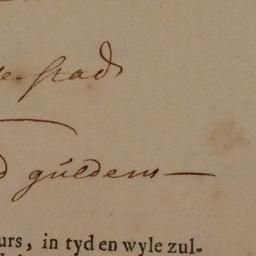 e stad
d guldens —
urs, in tyd en wyle zul-